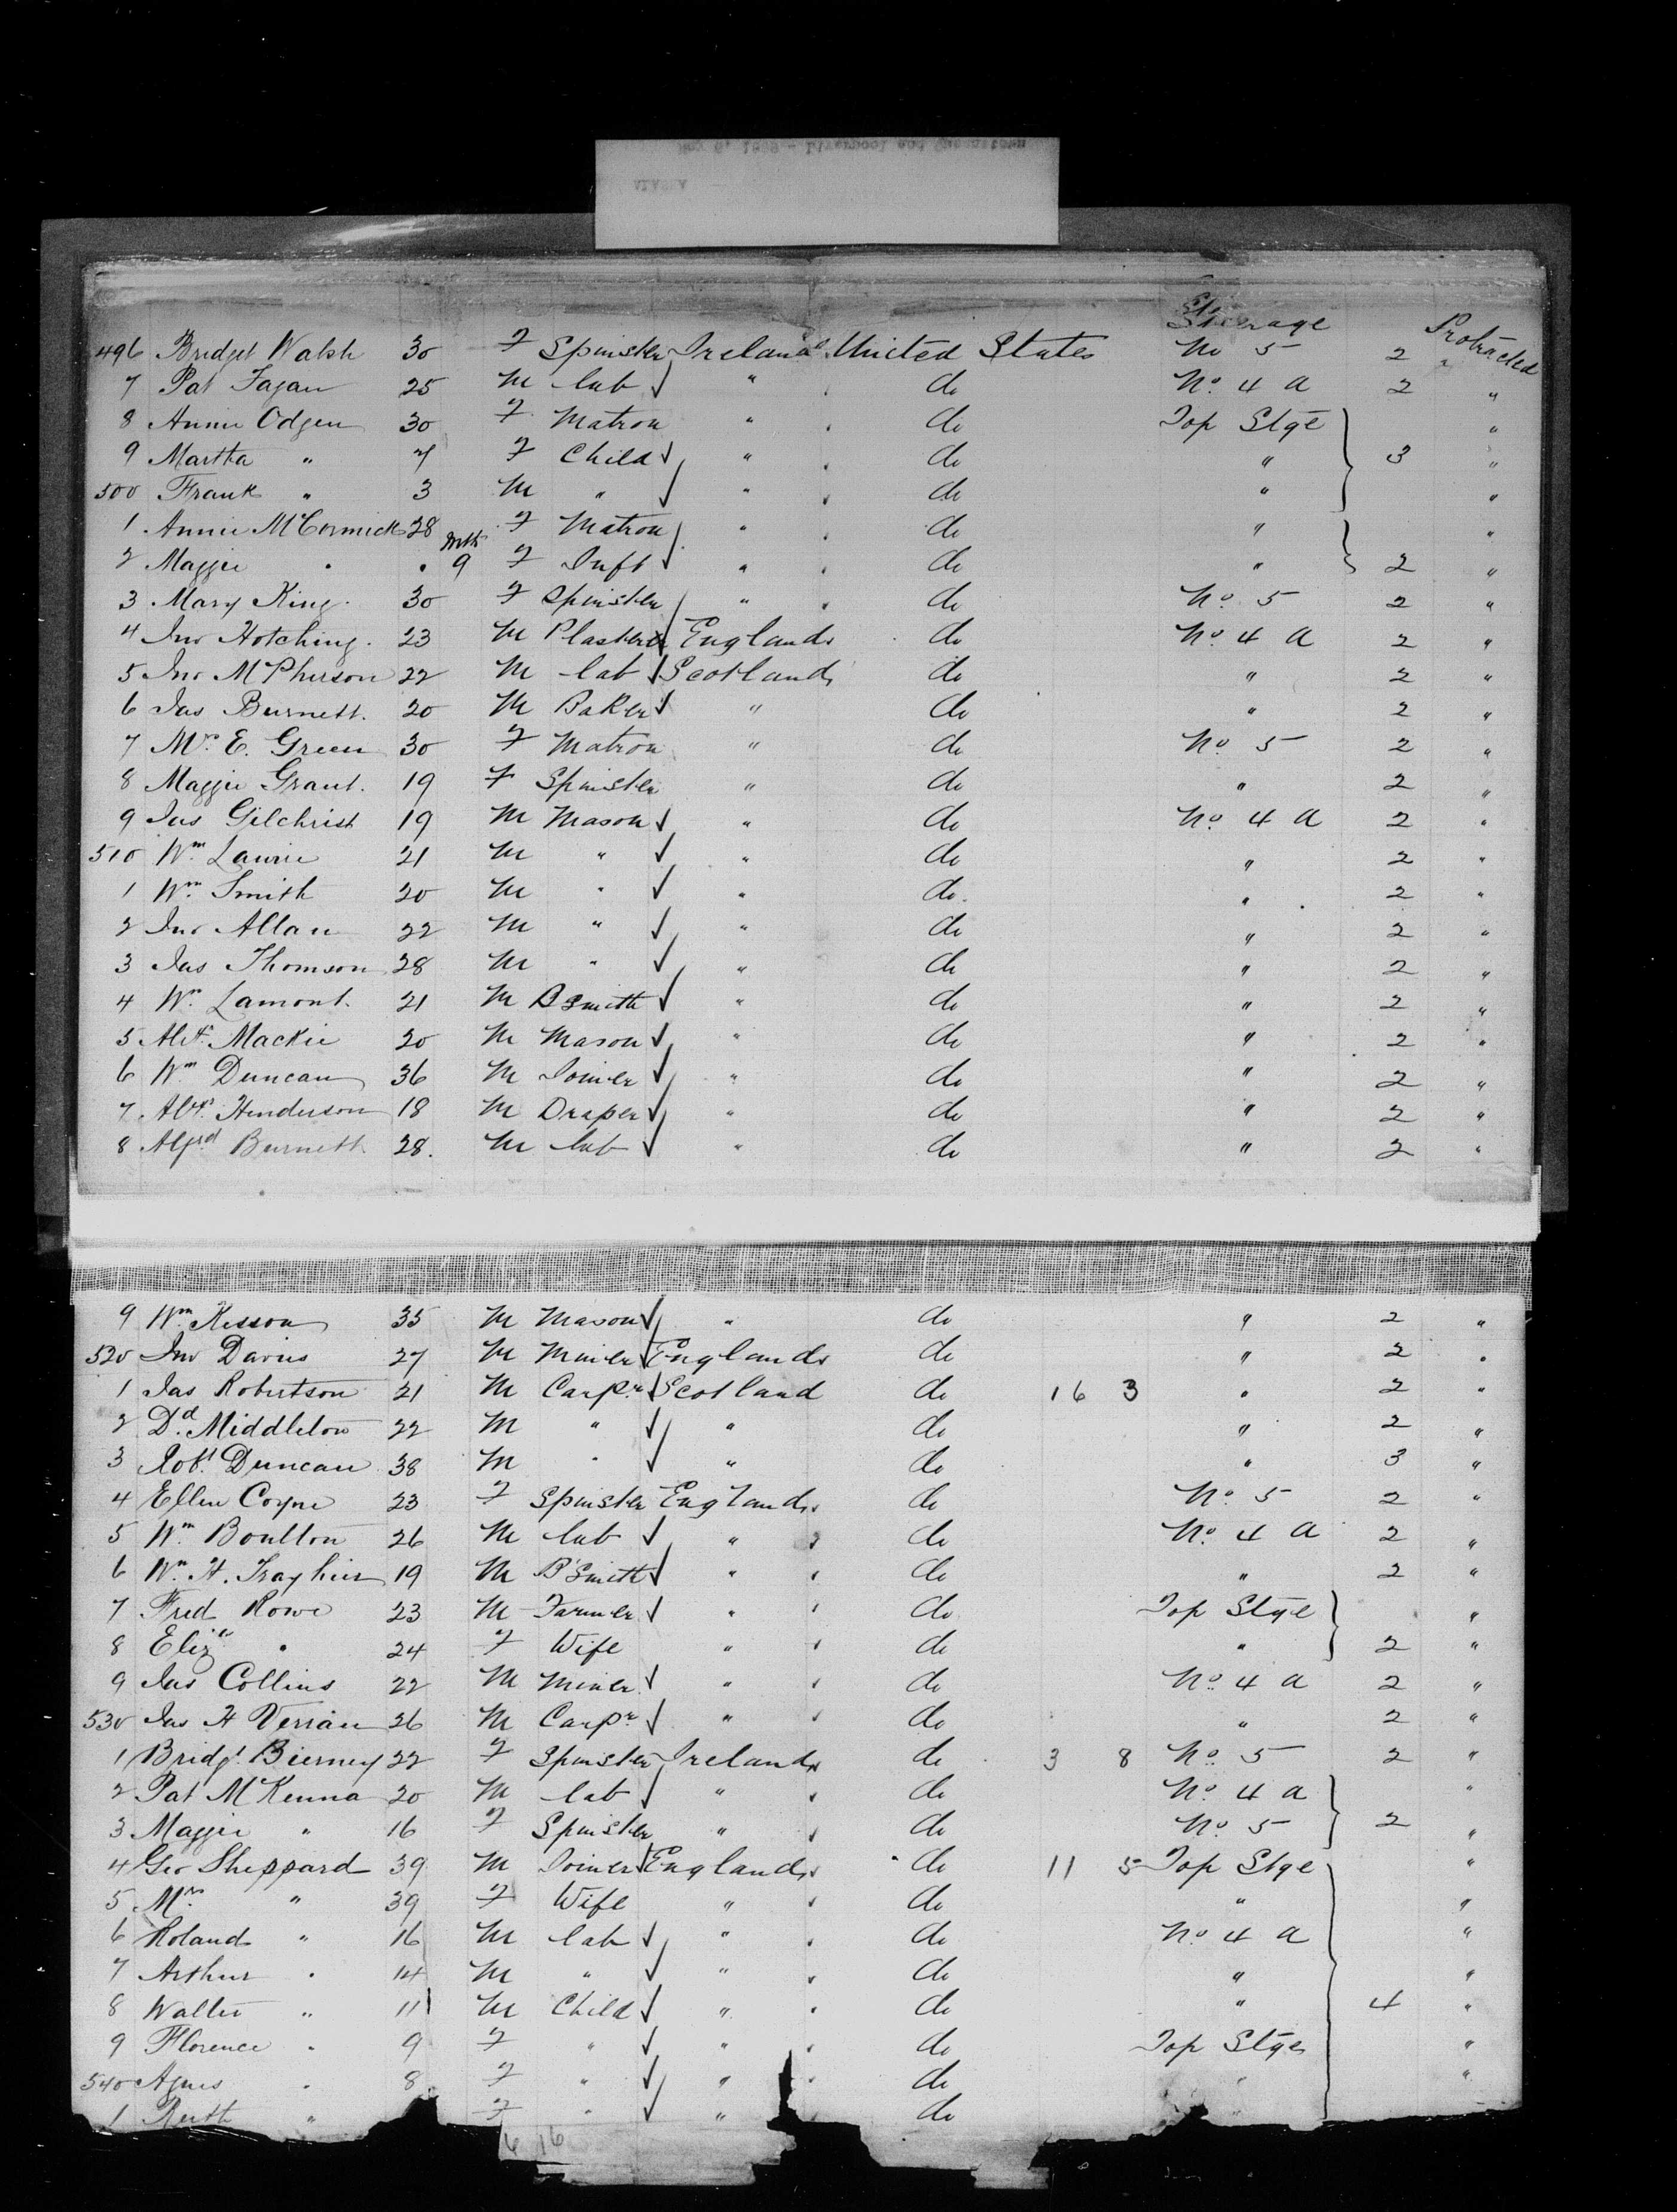 May 6, 1889 - Liverpool and Queenstown
ALASKA
Steerage
496 Bridget Walsh 30 F Spinster Ireland United States No 5 2 Protracted
7 Pat Fagan 25 M Lab " do No. 4 A 2 "
8 Annie Odgen 30 F Matron " do Top Stge "
9 Martha " 7 F Child " do " 3 "
500 Frank " 3 M " " do " "
1 Annie McCormick 28 F Matron " do " "
2 Maggie " " Mth 9 F Inft " do " 2 "
3 Mary King 30 F Spinster " do No. 5 2 "
4 Jno Hotching 23 M Plasterer England do No. 4 A 2 "
5 Jno McPherson 22 M Lab Scotland do " 2 "
6 Jas Burnett 20 M Baker " do " 2 "
7 Mrs E. Green 30 F Matron " do No 5 2 "
8 Maggie Grant 19 F Spinster " do " 2 "
9 Jas Gilchrist 19 M Mason " do No. 4 A 2 "
510 Wm Lawrie 21 M " " do " 2 "
1 Wm Smith 20 M " " do " 2 "
2 Jno Allan 22 M " " do " 2 "
3 Jas Thomson 28 M " " do " 2 "
4 Wm Lamont 21 M B Smith " do " 2 "
5 Alex Mackie 20 M Mason " do " 2 "
6 Wm Duncan 36 M Joiner " do " 2 "
7 Alex Henderson 18 M Draper " do " 2 "
8 Alfrd Burnett 28 M Lab " do " 2 "
9 Wm Kesson 35 M Mason " do " 2 "
520 Jno Davies 27 M Miner England do " 2 "
1 Jas Robertson 21 M Carpr Scotland do 16 3 " 2 "
2 Dd Middleton 22 M " " do " 2 "
3 Robt Duncan 38 M " " do " 3 "
4 Ellen Coyne 23 F Spinster England do No. 5 2 "
5 Wm Boulton 26 M Lab " do No. 4 A 2 "
6 Wm H. 19 M B'Smith " do " 2 "
7 Fred Rowe 23 M Farmer " do Top Stge "
8 Eliza " 24 F Wife " do " 2 "
9 Jas Collins 22 M Miner " do No. 4 A 2 "
530 Jas H 26 M Carpr " do " 2 "
1 Bridgt Bierney 22 F Spinster Ireland do 3 8 No. 5 2 "
2 Pat McKenna 20 M Lab " do No. 4 A "
3 Maggie " 16 F Spinster " do No. 5 2 "
4 Geo Sheppard 39 M Joiner England do 11 5 Top Stge "
5 Mrs " 39 F Wife " do " "
6 Roland " 16 M Lab " do No. 4 A "
7 Arthur " 14 M " " do " "
8 Walter " 11 M Child " do " 4 "
9 Florence " 9 F " " do Top Stge "
540 Agnes " 8 F " " do " "
1 Ruth " F " " do
6 16